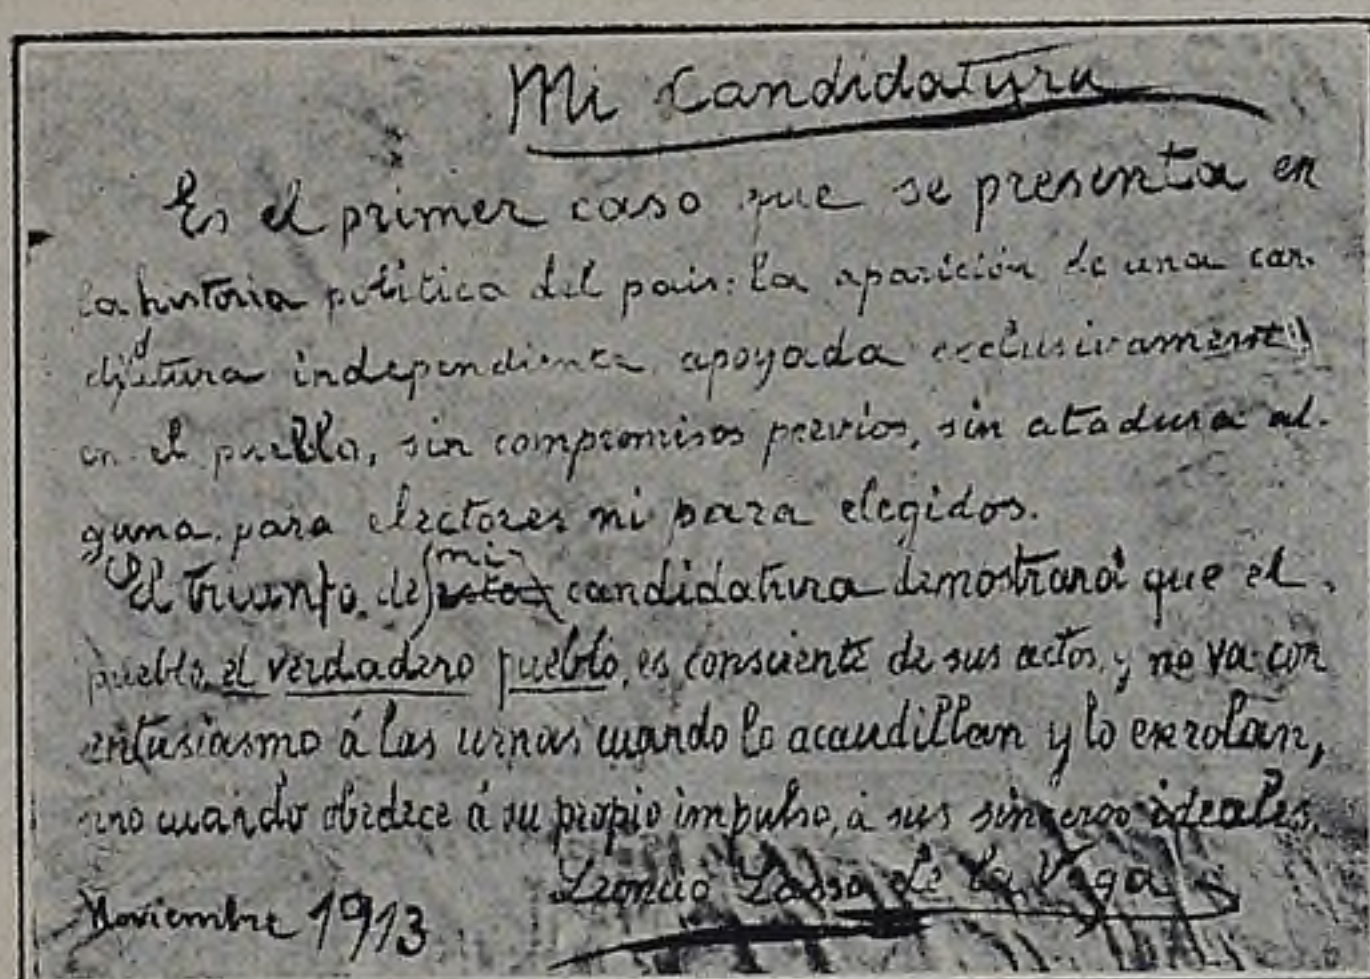 Mi Candidatura
Es el primer caso que se presenta en
la historia política del pais: la aparición de una can-
didatura independiente, apoyada exclusivamente
en el pueblo, sin compromisos previos, sin atadura al-
guna para electores ni para elegidos.
El triunfo de mi candidatura demostrará que el
pueblo, el verdadero pueblo, es consciente de sus actos, y no va con
entusiasmo á las urnas cuando lo acaudillan y lo enrolan,
sino cuando obedece á su propio impulso, á sus sinceros ideales.
Leoncio Lasso de la Vega
Noviembre 1913